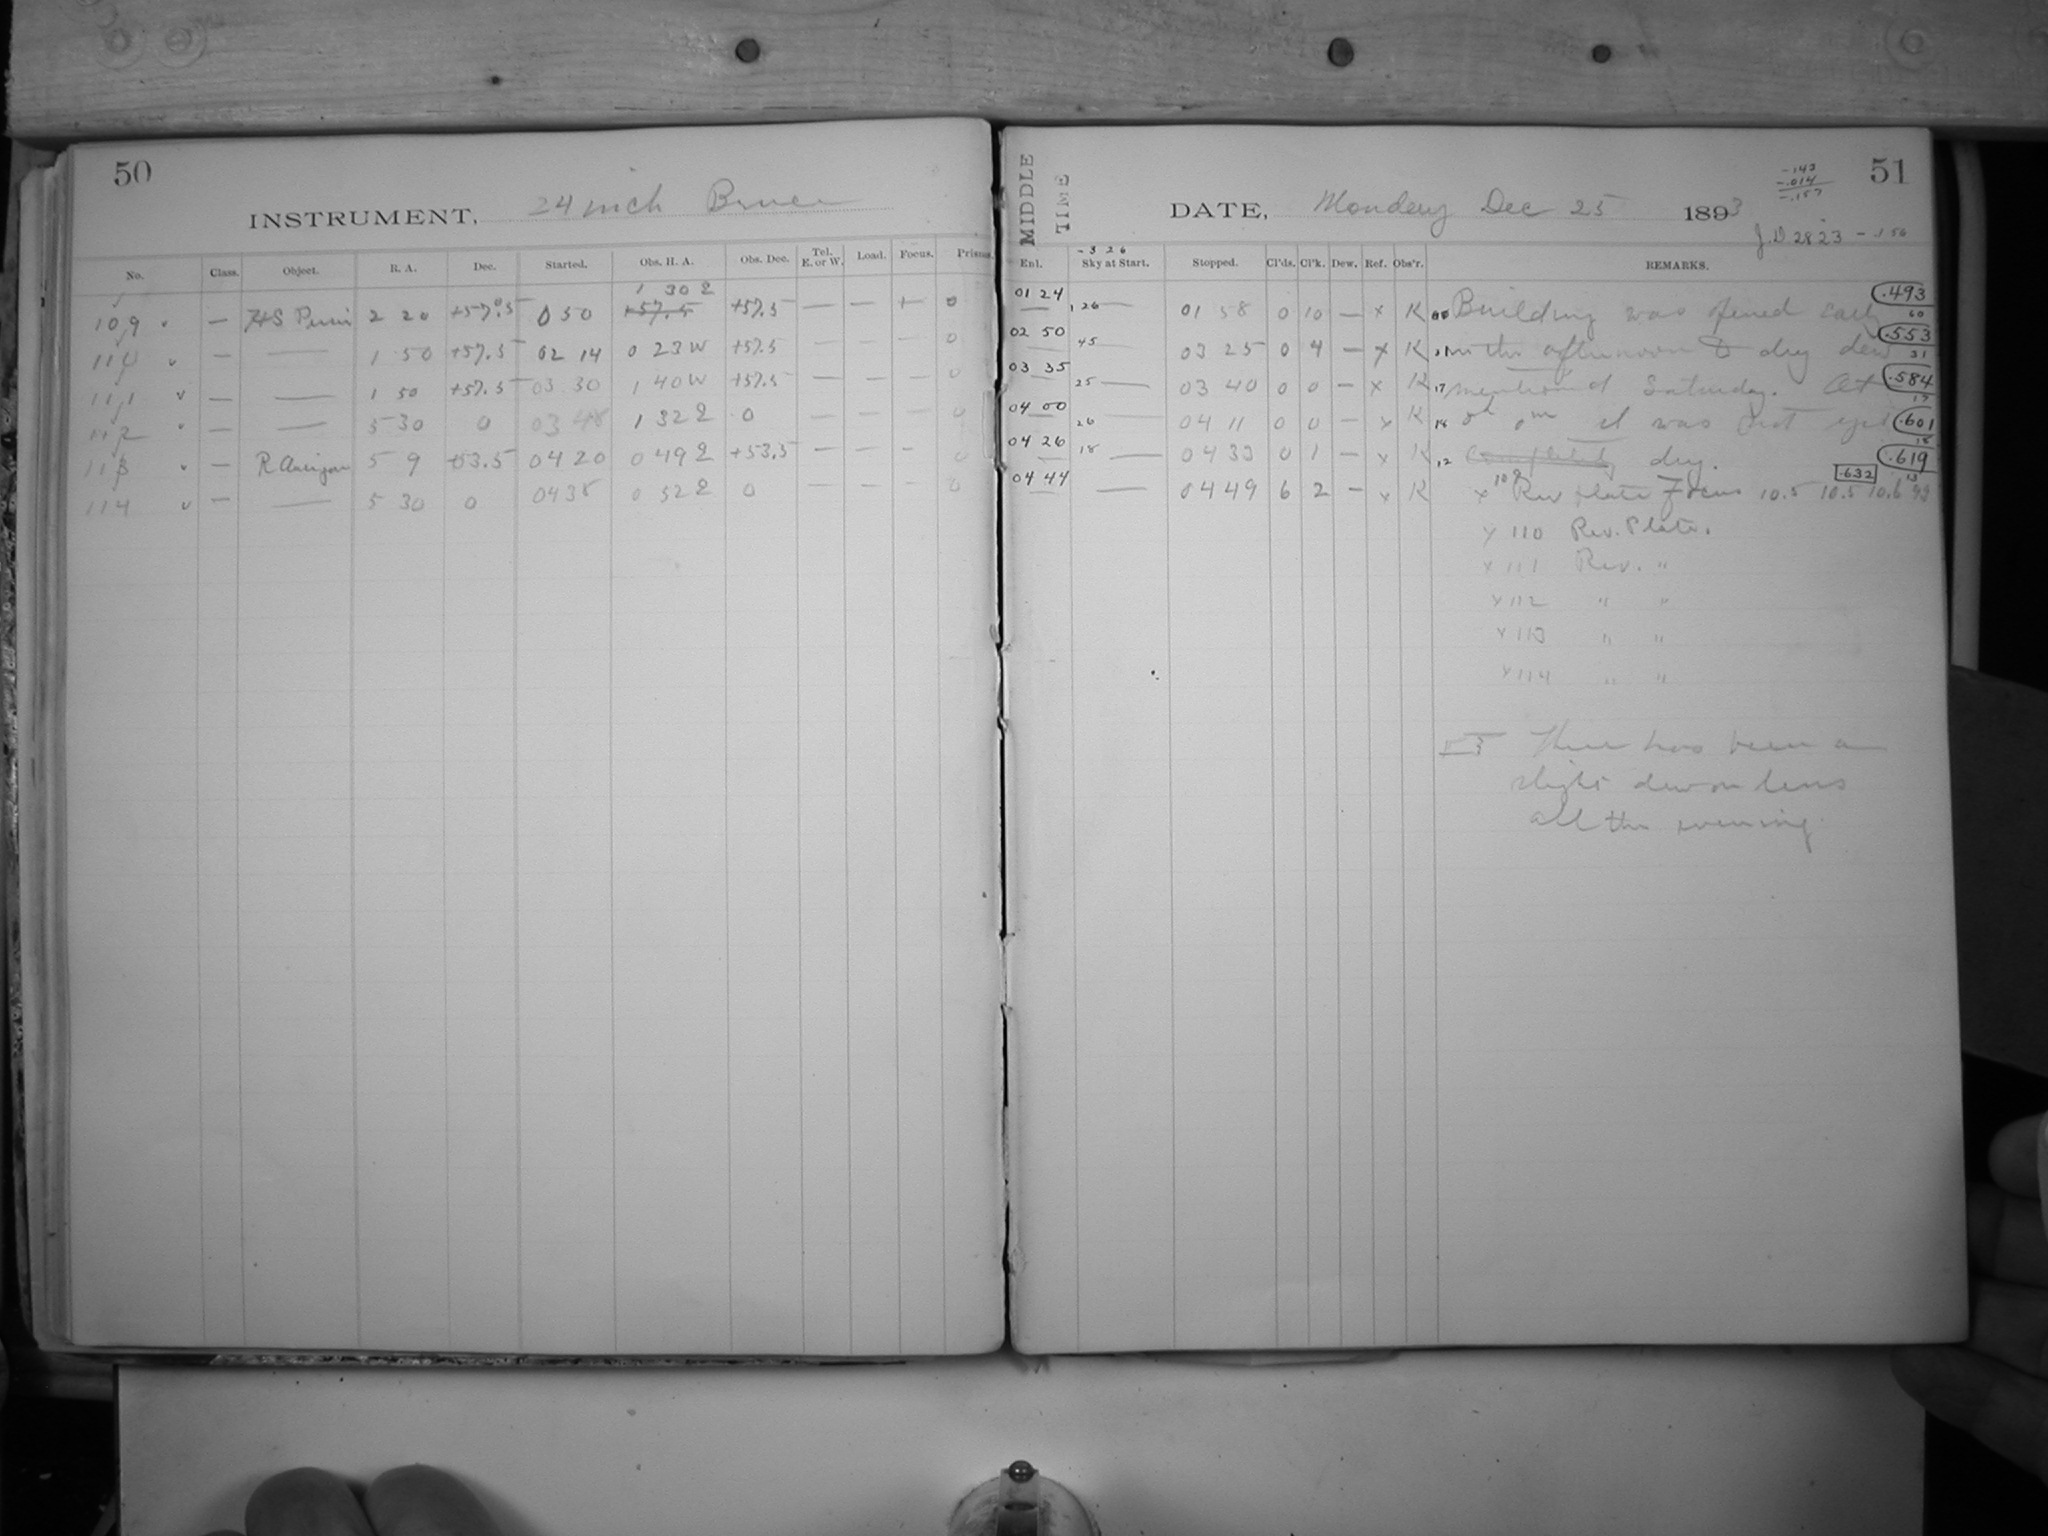 50
INSTRUMENT, 24 inch Bruce
No. Class. Object. R. A. Dec. Started. Obs. H. A. Obs. Dec. Tel. E. or W. Load. Focus. Prisms.
1 30 E
109 — H+S Persei 2 20 +57.5 0 50 +57.5 +57.5 — — + 0
110 — —— 1 50 +57.5 02 14 0 23 W +57.5 — — — 0
111 — —— 1 50 +57.5 03 30 1 40 W +57.5 — — — 0
112 — —— 5 30 0 03 48 1 32 E 0 — — — 0
113 — R Aurigae 5 9 +53.5 04 20 0 49 E +53.5 — — — 0
114 — —— 5 30 0 04 38 0 52 E 0 — — — 0
MIDDLE TIME
51
-.143
-.014
-.157
DATE, Monday Dec 25 1893
J.D 2823 -.156
-3 26
Enl. Sky at Start. Stopped. Cl'ds. Cl'k. Dew. Ref. Obs'r. REMARKS.
01 24 .26 — 01 58 0 10 — x K Building was fired early .493
60
02 50 45 — 03 25 0 4 — x K 31 in the afternoon to dry dew .553
31
03 35 25 — 03 40 0 0 — x K 17 mentioned Saturday. At .584
17
04 00 26 — 04 11 0 0 — x K 18 0m it was not yet .601
18
04 26 18 — 04 33 0 1 — x K 12 Completely dry. .619
.632 13
04 44 — 04 49 6 2 — x K x 109 Rev plate Focus 10.5 10.5 10.6
x 110 Rev. Plate.
x 111 Rev. "
x 112 " "
x 113 " "
x 114 " "
There has been a
slight dew on lens
all the evening.